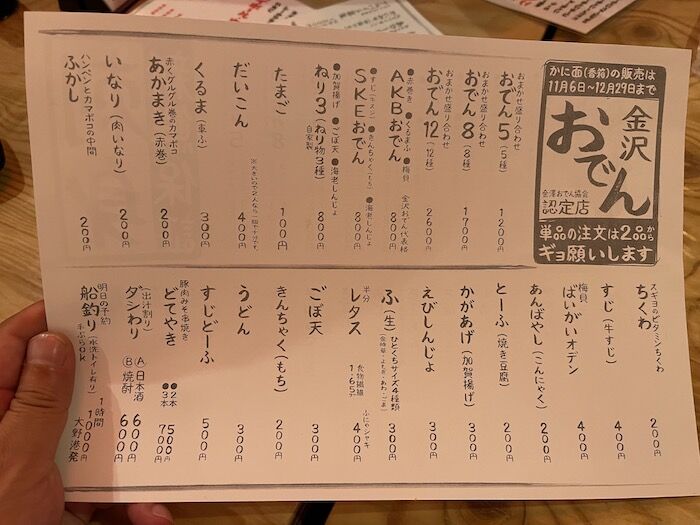 かに面(香箱)の販売は
11月6日~12月29日まで
金沢
おでん
金澤おでん協会
認定店
単品の注文は2品から
ギョ願いします
おまかせ盛り合わせ
おでん5(5種) 1200円
おまかせ盛り合わせ
おでん8(8種) 1700円
おまかせ盛り合わせ
おでん12(12種) 2600円
●赤巻き ●くるまふ ●梅貝
AKBおでん 金沢おでん代表格 800円
●すじ(牛スジ) ●きんちゃく(もち) ●海老しんじょ
SKEおでん 800円
●加賀揚げ ●ごぼ天 ●海老しんじょ
ねり3(ねり物3種) 自家製 800円
たまご 100円
だいこん 400円
くるま(車ふ) 300円
赤くグルグル巻のカマボコ
あかまき(赤巻) 200円
いなり(肉いなり) 200円
ハンペンとカマボコの中間
ふかし 200円
スギヨのビタミンちくわ
ちくわ 200円
すじ(牛すじ) 400円
梅貝
ばいがいオデン 400円
あんばやし(こんにゃく) 200円
とーふ(焼き豆腐) 200円
かがあげ(加賀揚げ) 300円
えびしんじょ 300円
ふ(生) ひとくちサイズ4種類 300円
半分
レタス 食物繊維1.65g ふにゃシャキ 400円
ごぼ天 300円
きんちゃく(もち) 200円
うどん 300円
すじどーふ 500円
豚肉みそ串焼き
どてやき ●2本 500円
●3本 700円
(出汁割り)
ダシわり Ⓐ日本酒 600円
Ⓑ焼酎 600円
明日の予約
船釣り(水洗トイレ有り) 1時間 1000円
手ぶらok 大野港発